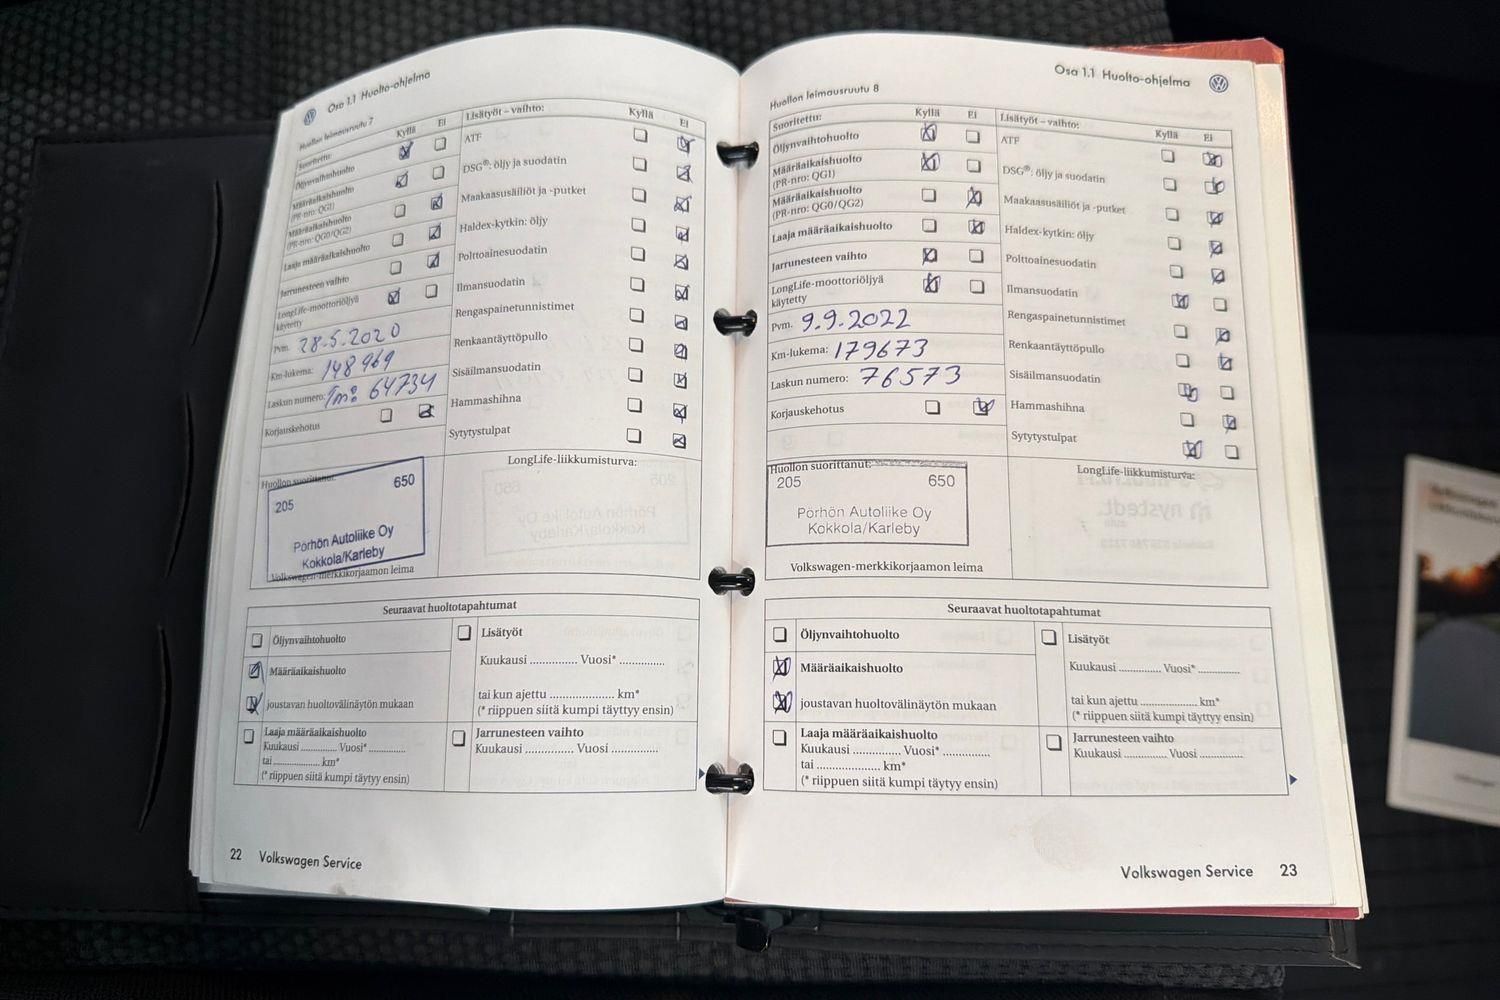 Osa 1.1 Huolto-ohjelma
Huollon leimausruutu 7
Suoritettu: Kyllä Ei
Öljynvaihtohuolto
Määräaikaishuolto
(PR-nro: QG1)
Määräaikaishuolto
(PR-nro: QG0/QG2)
Laaja määräaikaishuolto
Jarrunesteen vaihto
LongLife-moottoriöljyä
käytetty
Pvm. 28.5.2020
Km-lukema: 148969
Laskun numero: 64734
Korjauskehotus
Lisätyöt – vaihto: Kyllä Ei
ATF
DSG®: öljy ja suodatin
Maakaasusäiliöt ja -putket
Haldex-kytkin: öljy
Polttoainesuodatin
Ilmansuodatin
Rengaspainetunnistimet
Renkaantäyttöpullo
Sisäilmansuodatin
Hammashihna
Sytytystulpat
Huollon suorittanut:
205 650
Pörhön Autoliike Oy
Kokkola/Karleby
Volkswagen-merkkikorjaamon leima
LongLife-liikkumisturva:
Seuraavat huoltotapahtumat
Öljynvaihtohuolto
Määräaikaishuolto
joustavan huoltovälinäytön mukaan
Laaja määräaikaishuolto
Kuukausi ............ Vuosi* ............
tai ............... km*
(* riippuen siitä kumpi täytyy ensin)
Lisätyöt
Kuukausi ............... Vuosi* ...............
tai kun ajettu .................... km*
(* riippuen siitä kumpi täyttyy ensin)
Jarrunesteen vaihto
Kuukausi ............... Vuosi ...............
22 Volkswagen Service
Osa 1.1 Huolto-ohjelma
Huollon leimausruutu 8
Suoritettu: Kyllä Ei
Öljynvaihtohuolto
Määräaikaishuolto
(PR-nro: QG1)
Määräaikaishuolto
(PR-nro: QG0/QG2)
Laaja määräaikaishuolto
Jarrunesteen vaihto
LongLife-moottoriöljyä
käytetty
Pvm. 9.9.2022
Km-lukema: 179673
Laskun numero: 76573
Korjauskehotus
Lisätyöt – vaihto: Kyllä Ei
ATF
DSG®: öljy ja suodatin
Maakaasusäiliöt ja -putket
Haldex-kytkin: öljy
Polttoainesuodatin
Ilmansuodatin
Rengaspainetunnistimet
Renkaantäyttöpullo
Sisäilmansuodatin
Hammashihna
Sytytystulpat
Huollon suorittanut:
205 650
Pörhön Autoliike Oy
Kokkola/Karleby
Volkswagen-merkkikorjaamon leima
LongLife-liikkumisturva:
Seuraavat huoltotapahtumat
Öljynvaihtohuolto
Määräaikaishuolto
joustavan huoltovälinäytön mukaan
Laaja määräaikaishuolto
Kuukausi ............... Vuosi* ...............
tai .................... km*
(* riippuen siitä kumpi täytyy ensin)
Lisätyöt
Kuukausi ............... Vuosi* ...............
tai kun ajettu .................... km*
(* riippuen siitä kumpi täyttyy ensin)
Jarrunesteen vaihto
Kuukausi ............... Vuosi ...............
Volkswagen Service 23